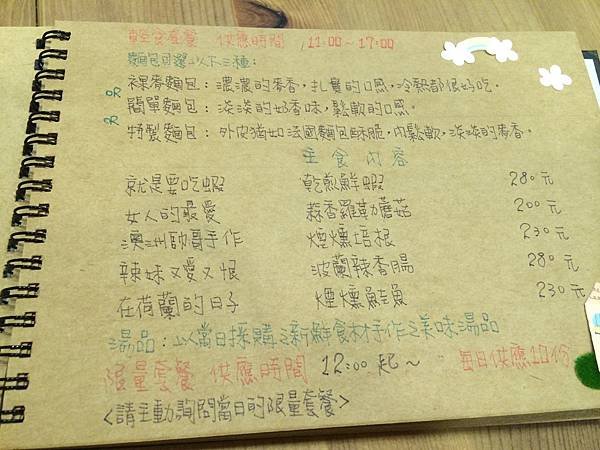 輕食套餐 供應時間 11:00~17:00
麵包可選以下三種:
裸麥麵包:濃濃的麥香,扎實的口感,冷熱都很好吃。
簡單麵包:淡淡的奶香味,鬆軟的口感。
特製麵包:外皮猶如法國麵包酥脆,內鬆軟,淡淡的麥香。
主食內容
就是要吃蝦 乾煎鮮蝦 280元
女人的最愛 蒜香羅勒蘑菇 200元
澳洲帥哥手作 煙燻培根 230元
辣妹又愛又恨 波蘭辣香腸 280元
在荷蘭的日子 煙燻鮭魚 230元
湯品:以當日採購之新鮮食材手作之美味湯品
限量套餐 供應時間 12:00起~ 每日供應10份
<請主動詢問當日的限量套餐>